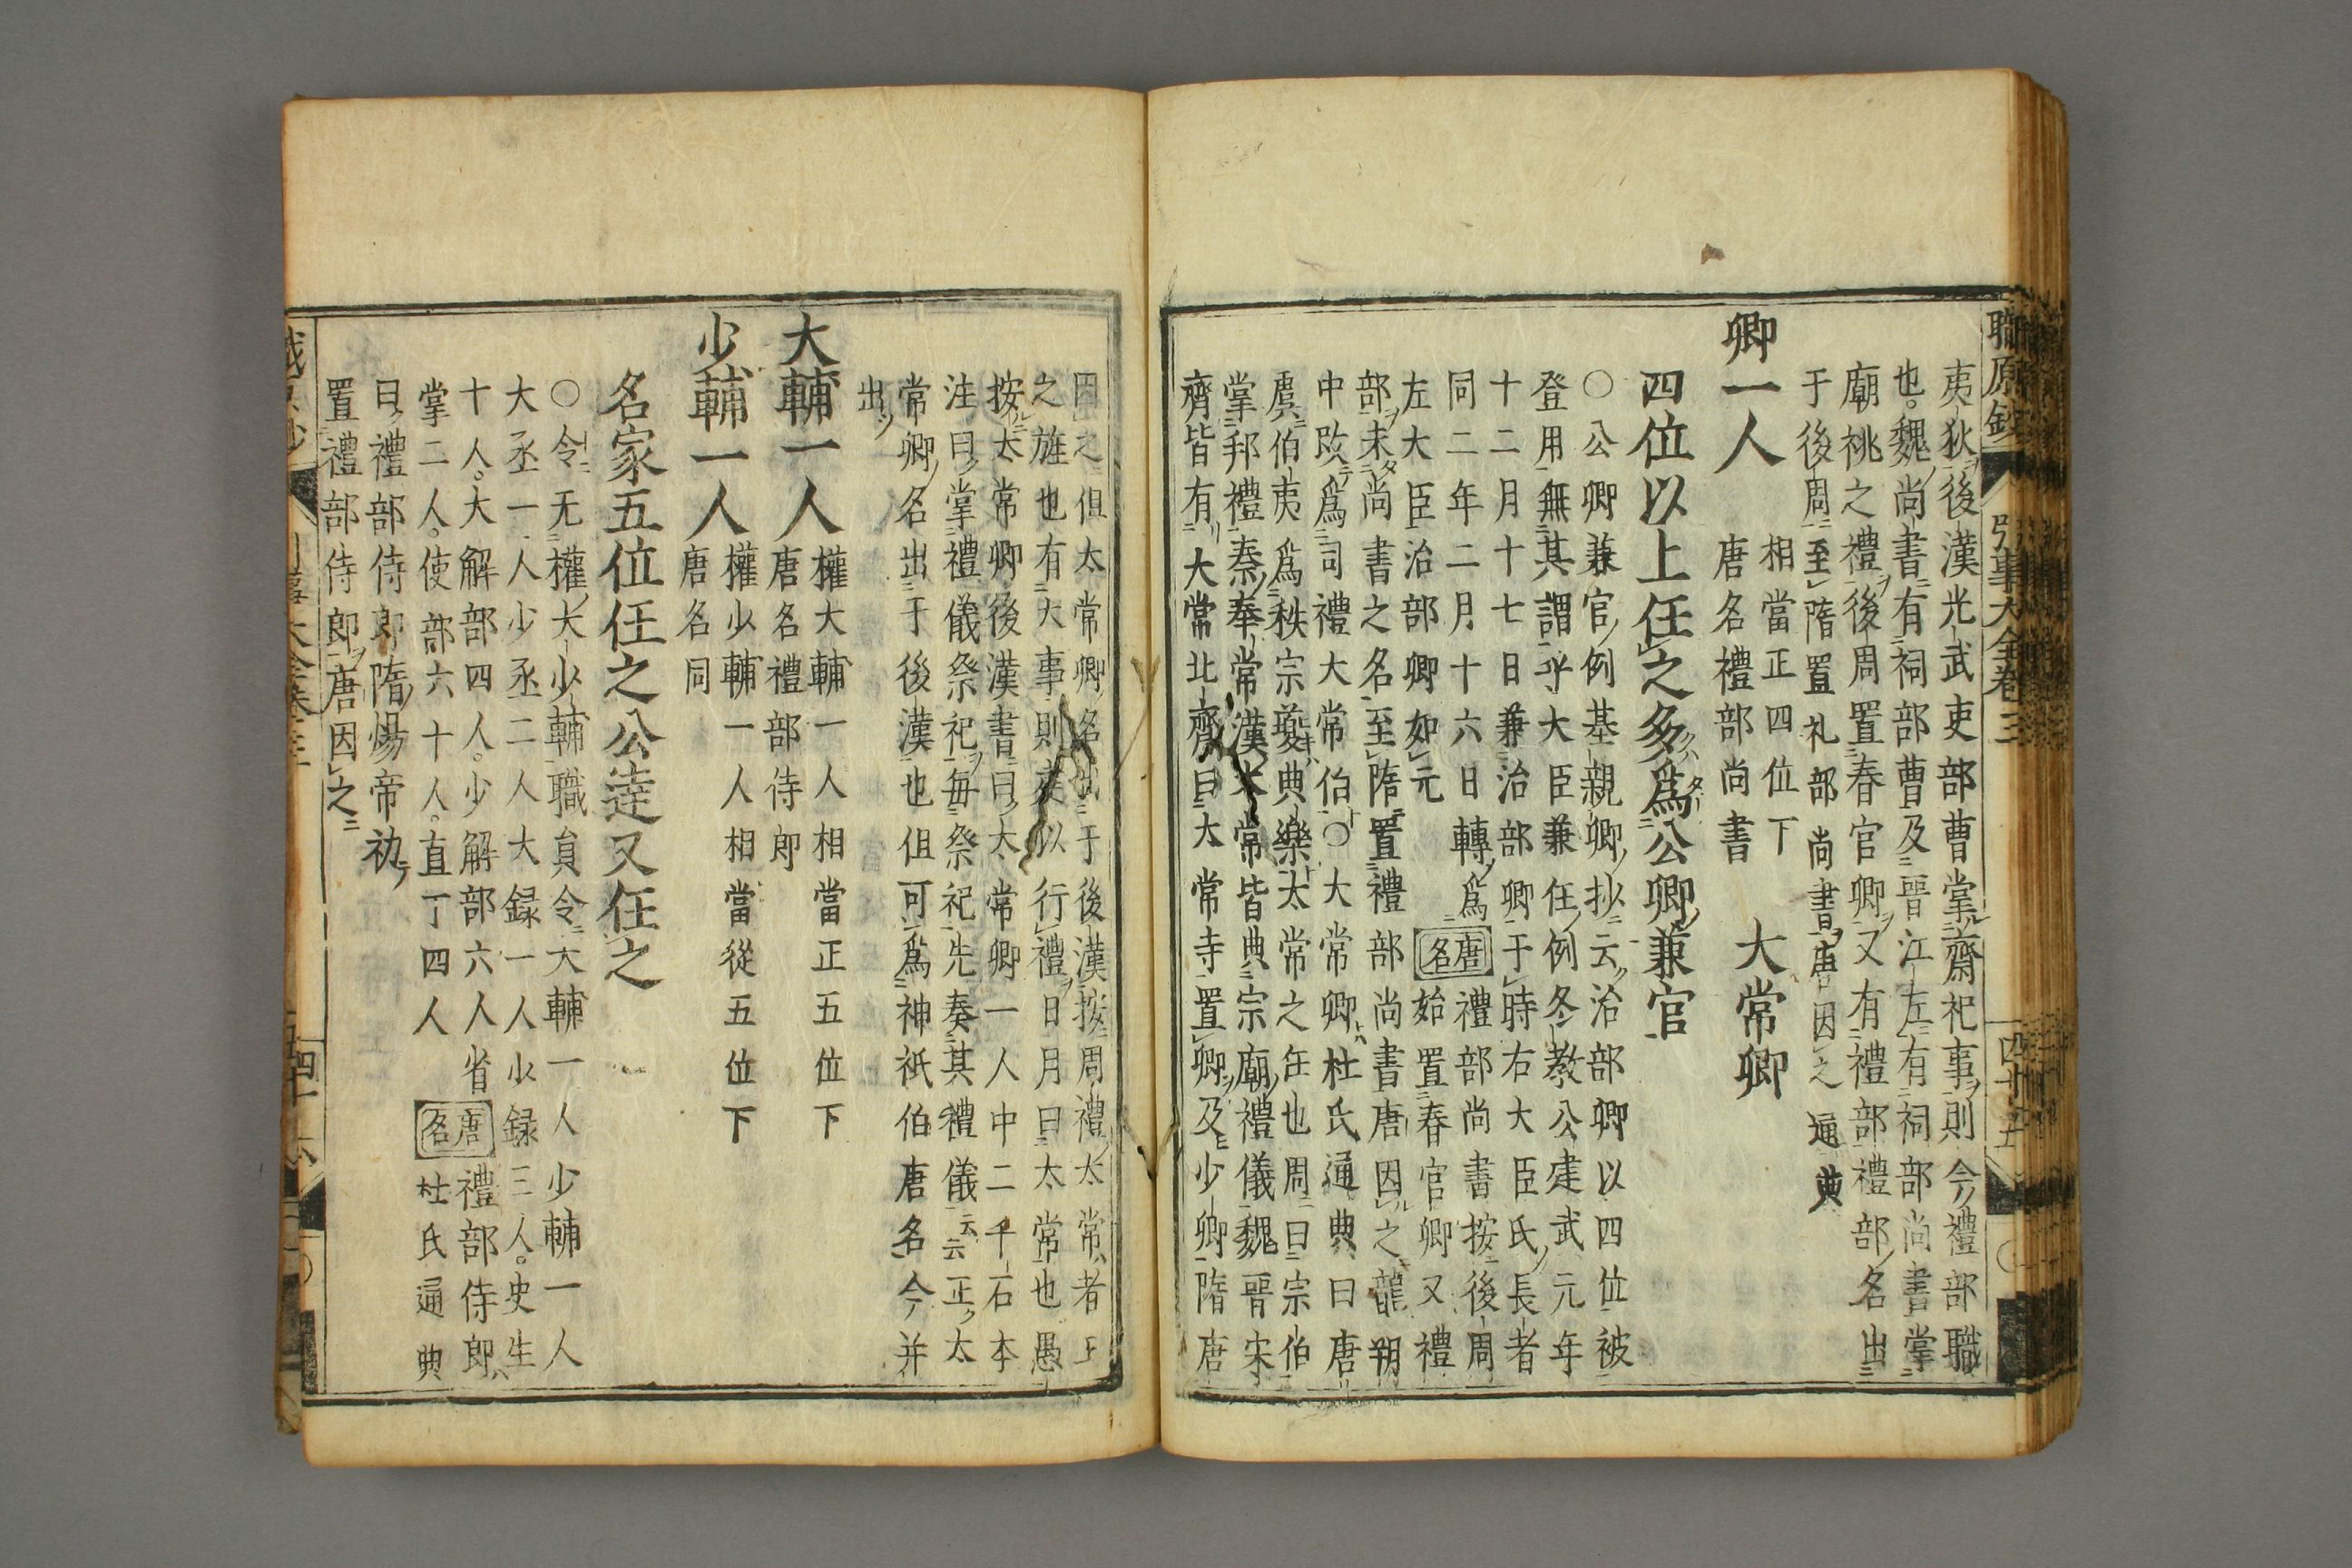 職原鈔 引事大全卷三 四十五
夷狄ヲ後漢光武吏部曹掌レ齋祀事ヲ則今ノ禮部職
也。魏尚書ニ有祠部曹及ニ晉江左ニ有祠部尚書掌
廟祧之禮ヲ後周置春官卿ヲ又有禮部禮部ノ名出ニ
于後周ニ至隋置礼部尚書ヲ唐因之 通典
卿一人 相當正四位下 大常卿
唐名禮部尚書
四位以上任之多クハ爲公卿ノ兼官
〇公卿兼官ノ例基親卿ノ抄ニ云ク治部卿以四位被
登用無其謂乎大臣兼任ノ例冬教公建武元年
十二月十七日兼治部卿于時右大臣氏ノ長者
同二年二月十六日轉ノ爲唐名禮部尚書按後周
左大臣治部卿如元 始置春官卿又禮
部ヲ未タ尚書之名至隋置禮部尚書唐因之龍朔
中改爲司禮大常伯ト〇大常卿ハ杜氏通典曰唐
虞ニ伯夷爲秩宗夔典樂太常之任也周ニ曰宗伯
掌邦禮秦ノ奉常漢太常皆典宗廟ノ禮儀魏晉宋
齊皆有大常北齊曰大常寺置卿ヲ及ヒ少卿隋唐
因之但太常卿名出ニ于後漢按周禮ノ太常ハ者上
之旌也有大事則建以行禮ヲ日月曰太常也愚
按ルニ太常卿後漢書曰ク太常卿一人中二千石本
注曰ク掌禮儀祭祀ヲ毎祭祀先奏其禮儀云云正ク太
常卿ノ名出于後漢也但可爲神祇伯唐名今并
出ツ
大輔一人 權大輔一人相當正五位下
唐名禮部侍郎
少輔一人 權少輔一人相當從五位下
唐名同
名家五位任之公達又任之
〇令ニ无權ノ大少輔職員令ニ大輔一人少輔一人
大丞一人少丞二人大録一人少録三人。史生
十人。大解部四人。少解部六人省唐名禮部侍郎ハ
掌二人。使部六十人。直丁四人 杜氏通典
曰ク禮部侍郎隋ノ煬帝初テ
置禮部侍郎ヲ唐因之ニ
引事大全卷三 四十六